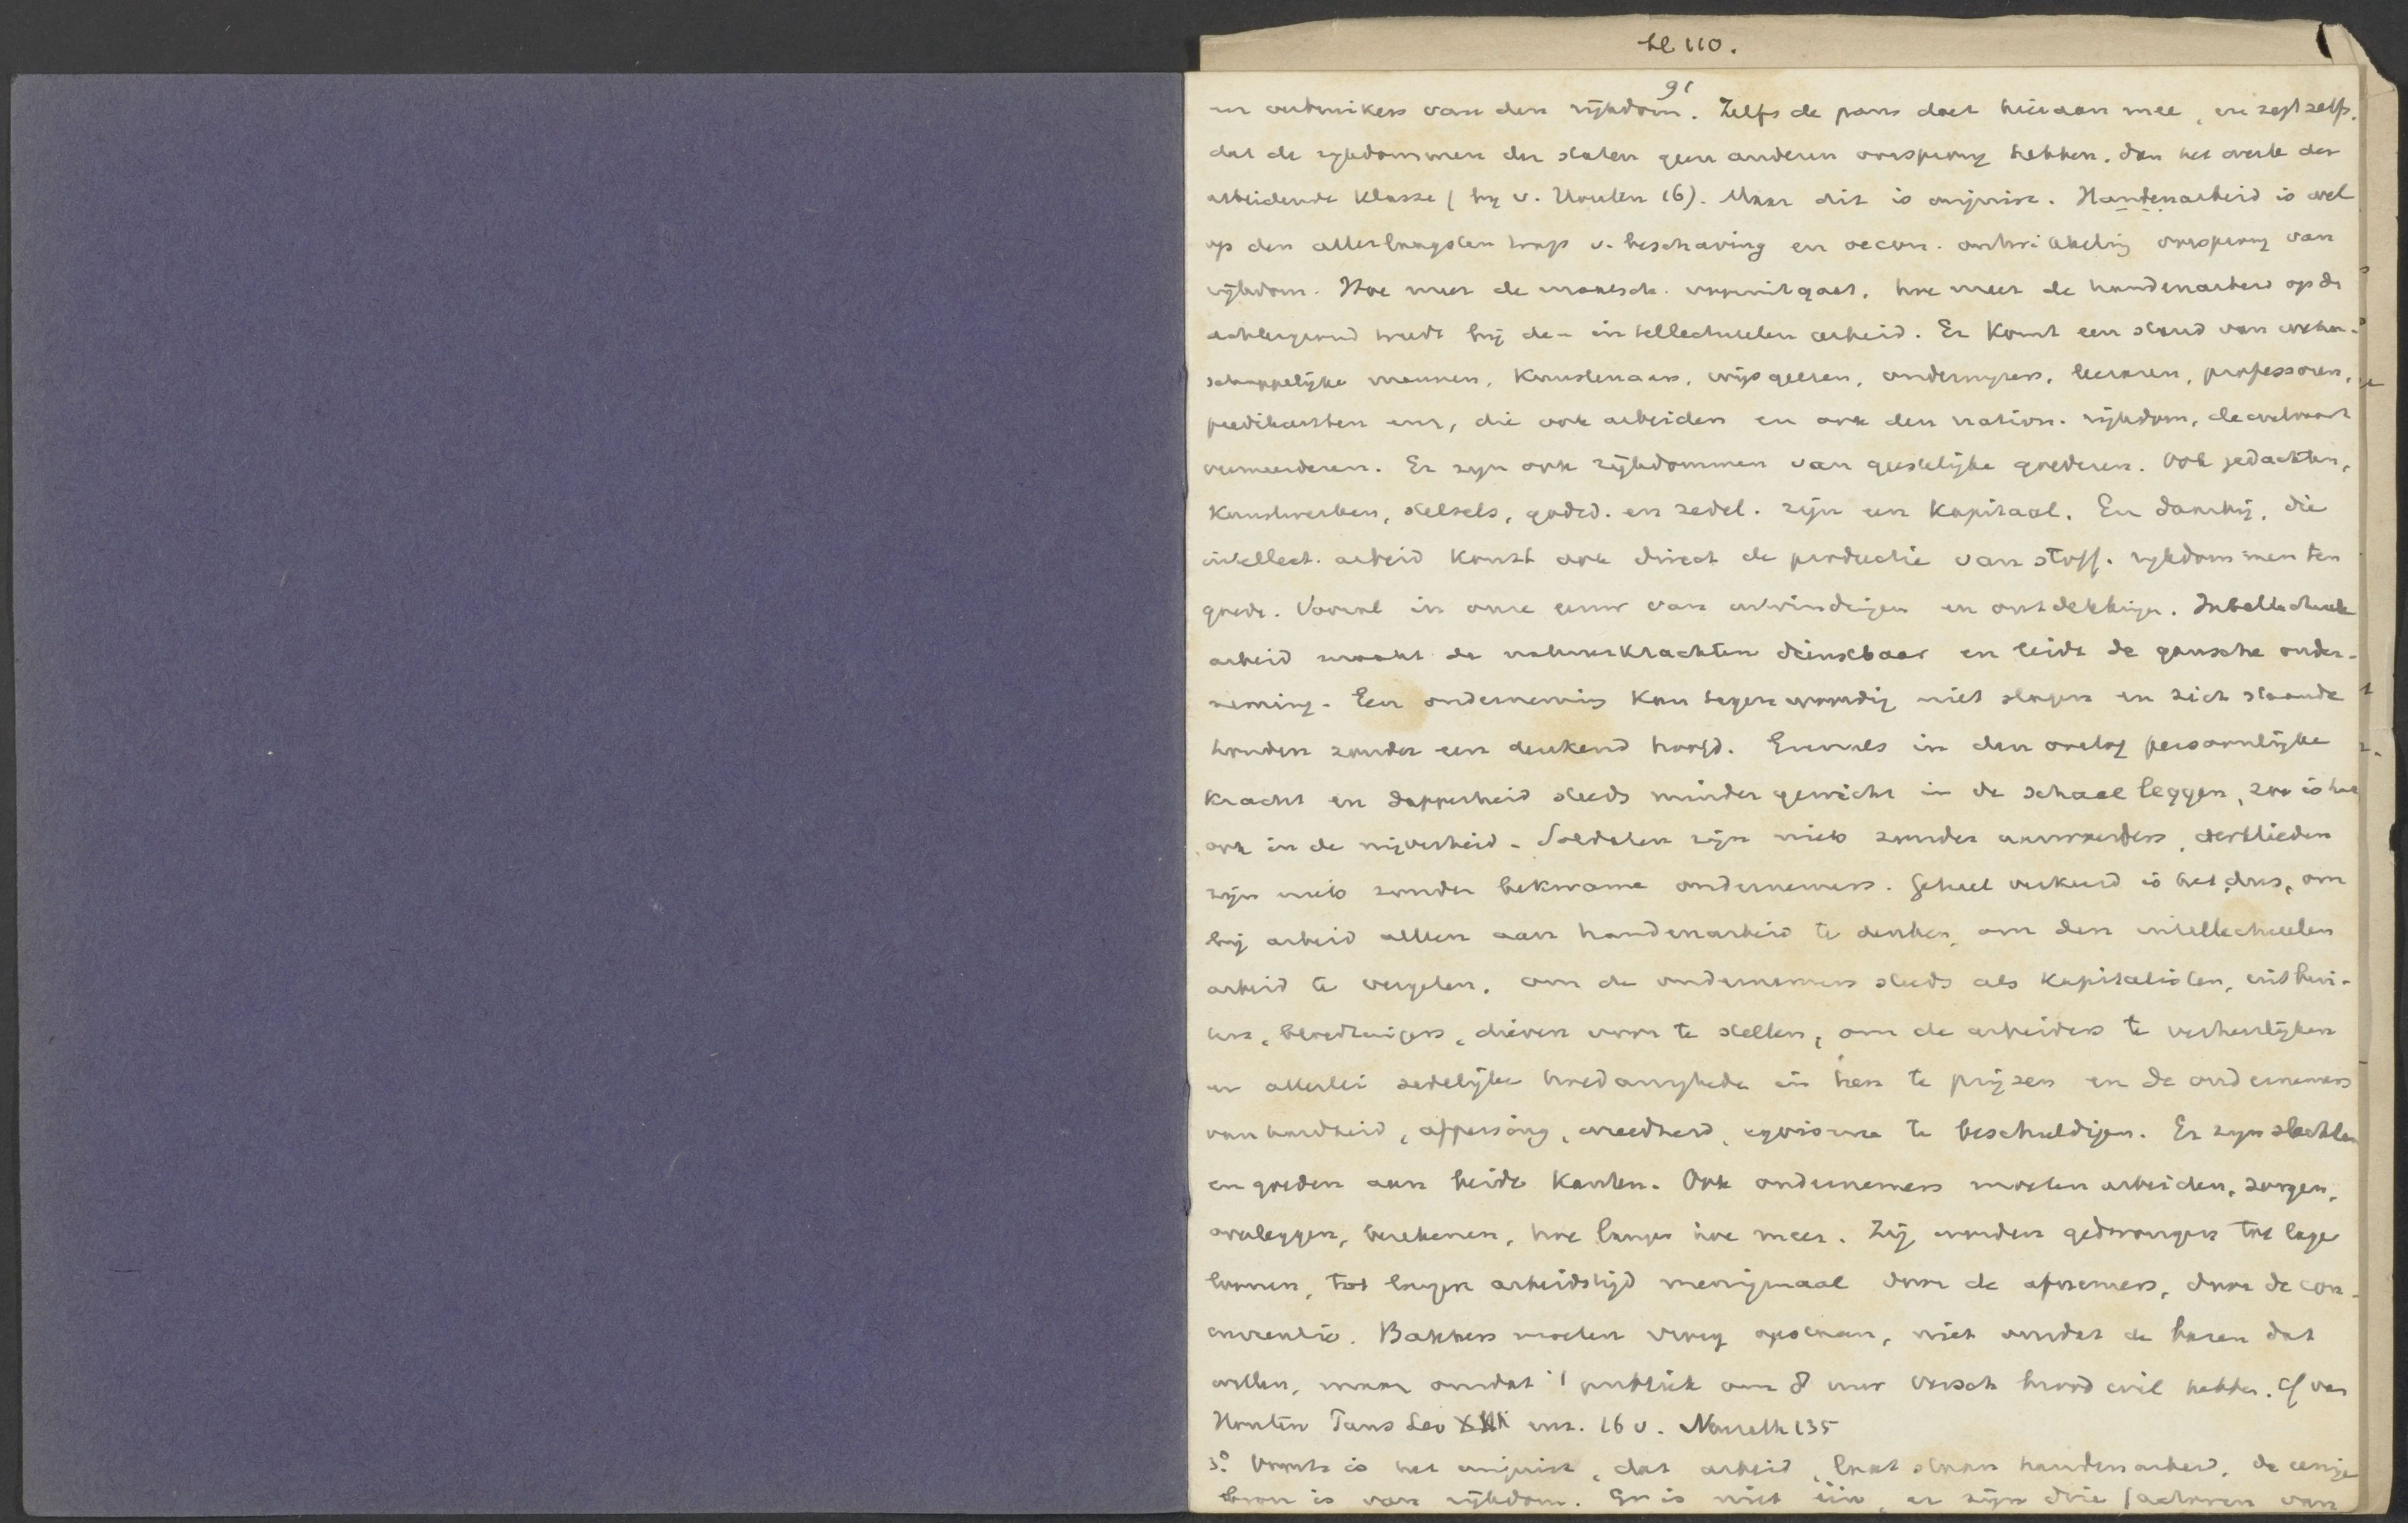 bl 110.
91
en verbruikers van den rijkdom. Zelfs de paus doet hieraan mee, en zegt zelfs,
dat de rijkdommen der staten geen anderen oorsprong hebben, dan het werk der
arbeidende klasse (bij v. Houten 16). Maar dit is onjuist. Handenarbeid is wel
op den allerlaagsten trap v. beschaving en oecon. ontwikkeling oorsprong van
rijkdom. Hoe meer de maatsch. vooruitgaat, hoe meer de handenarbeid op de
achtergrond treedt bij de - intellectueelen arbeid. Er komt een stand van weten-
schappelijke mannen, kunstenaars, wijsgeeren, onderwijzers, leeraren, professoren,
predikanten enz, die ook arbeiden en ook den nation. rijkdom, de welvaart
vermeerderen. Er zijn ook rijkdommen van geestelijke goederen. Ook gedachten,
kunstwerken, stelsels, godsd. en zedel. zijn een kapitaal. En daarbij, die
intellect. arbeid komt ook direct de productie van stoff. rijkdommen ten
goede. Vooral in onze eeuw van uitvindingen en ontdekkingen. Intellectueele
arbeid maakt de natuurkrachten dienstbaar en leidt de gansche onder-
neming. Een onderneming kan tegenwoordig niet slagen en zich staande
houden zonder een denkend hoofd. Evenals in den oorlog persoonlijke
kracht en dapperheid steeds minder gewicht in de schaal leggen, zoo is het
ook in de nijverheid. Soldaten zijn niets zonder aanvoerders, werklieden
zijn niets zonder bekwame ondernemers. Geheel verkeerd is het dus, om
bij arbeid alleen aan handenarbeid te denken, om den intellectueelen
arbeid te vergeten, om de ondernemers steeds als kapitalisten, uitbui-
ters, bloedzuigers, dieven voor te stellen, om de arbeiders te verheerlijken
en allerlei zedelijke hoedanigheden in hen te prijzen en de ondernemers
van hardheid, afpersing, wreedheid, egoisme te beschuldigen. Er zijn slechten
en goeden aan beide kanten. Ook ondernemers moeten arbeiden, zorgen,
overleggen, berekenen, hoe langer hoe meer. Zij worden gedwongen tot lage
loonen, tot langen arbeidstijd menigmaal door de afnemers, door de con-
currentie. Bakkers moeten vroeg opstaan, niet omdat de bazen dat
willen, maar omdat 't publiek om 8 uur versch brood wil hebben. Cf van
Houten Paus Leo XIII enz. 16 v. Naureth 135
3o. Voorts is het onjuist, dat arbeid, laat staan handenarbeid, de eenige
bron is van rijkdom. Er is niet één, er zijn drie factoren van